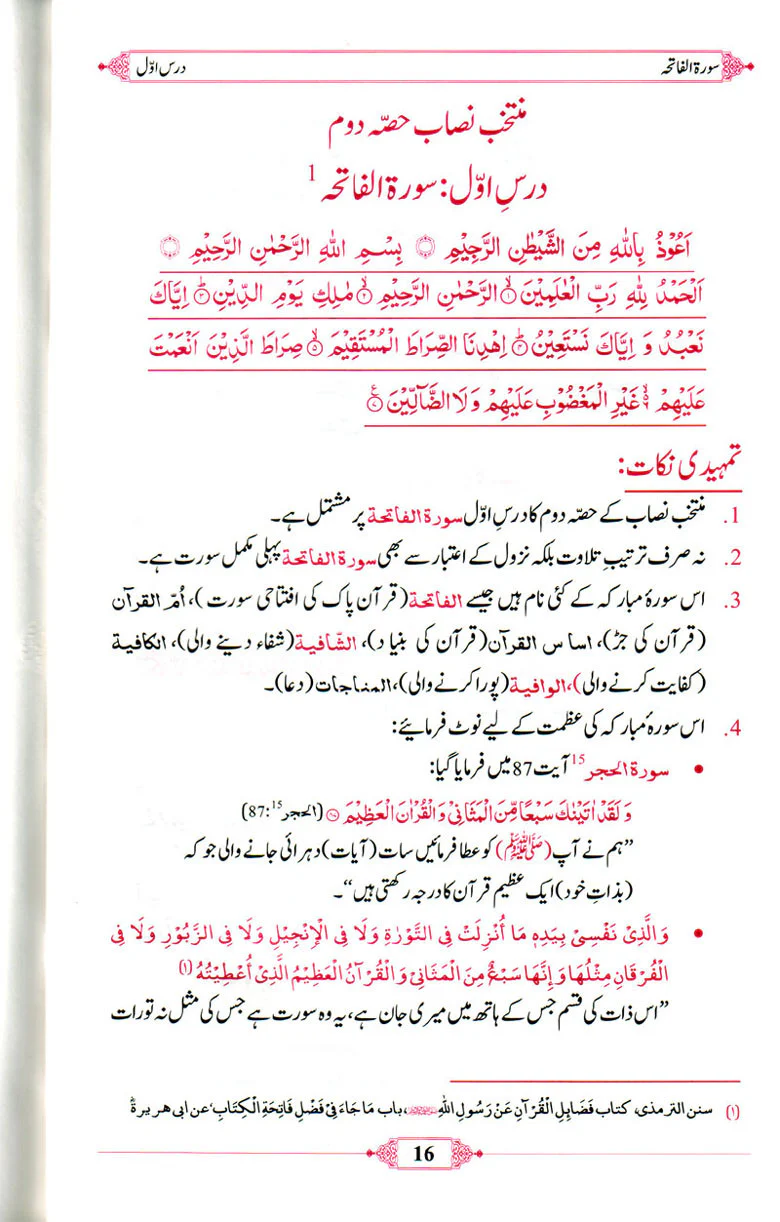 سورۃ الفاتحہ
درس اوّل
منتخب نصاب حصّہ دوم
درسِ اوّل: سورۃ الفاتحہ 1
اَعُوْذُ بِاللّٰهِ مِنَ الشَّيْطٰنِ الرَّجِيْمِ ۝ بِسْمِ اللّٰهِ الرَّحْمٰنِ الرَّحِيْمِ ۝
اَلْحَمْدُ لِلّٰهِ رَبِّ الْعٰلَمِيْنَ ۙ۝۱ الرَّحْمٰنِ الرَّحِيْمِ ۙ۝۲ مٰلِكِ يَوْمِ الدِّيْنِ ؕ۝۳ اِيَّاكَ
نَعْبُدُ وَ اِيَّاكَ نَسْتَعِيْنُ ؕ۝۴ اِهْدِنَا الصِّرَاطَ الْمُسْتَقِيْمَ ۙ۝۵ صِرَاطَ الَّذِيْنَ اَنْعَمْتَ
عَلَيْهِمْ ۙ۬۝۶ غَيْرِ الْمَغْضُوْبِ عَلَيْهِمْ وَ لَا الضَّآلِّيْنَ ۧ۝۷
تمہیدی نکات:
1. منتخب نصاب کے حصہ دوم کا درسِ اوّل سورۃ الفاتحۃ پر مشتمل ہے۔
2. نہ صرف ترتیبِ تلاوت بلکہ نزول کے اعتبار سے بھی سورۃ الفاتحۃ پہلی مکمل سورت ہے۔
3. اس سورۂ مبارکہ کے کئی نام ہیں جیسے الفاتحۃ (قرآن پاک کی افتتاحی سورت)، اُمّ القرآن
(قرآن کی جڑ)، اساس القرآن (قرآن کی بنیاد)، الشّافیۃ (شفاء دینے والی)، الکافیۃ
(کفایت کرنے والی)، الوافیۃ (پورا کرنے والی)، المناجات (دعا)۔
4. اس سورۂ مبارکہ کی عظمت کے لیے نوٹ فرمائیے:
• سورۃ الحجر 15 آیت 87 میں فرمایا گیا:
وَ لَقَدْ اٰتَيْنٰكَ سَبْعًا مِّنَ الْمَثَانِيْ وَ الْقُرْاٰنَ الْعَظِيْمَ ۝۸۷ (الحجر 15: 87)
”ہم نے آپ (ﷺ) کو عطا فرمائیں سات (آیات) دہرائی جانے والی جو کہ
(بذاتِ خود) ایک عظیم قرآن کا درجہ رکھتی ہیں“۔
• وَالَّذِيْ نَفْسِيْ بِيَدِهٖ مَا أُنْزِلَتْ فِي التَّوْرٰةِ وَلَا فِي الْإِنْجِيْلِ وَلَا فِي الزَّبُوْرِ وَلَا فِي
الْفُرْقَانِ مِثْلُهَا وَ إِنَّهَا سَبْعٌ مِنَ الْمَثَانِيْ وَ الْقُرْآنُ الْعَظِيْمُ الَّذِيْ أُعْطِيْتُهُ (۱)
”اس ذات کی قسم جس کے ہاتھ میں میری جان ہے، یہ وہ سورت ہے جس کی مثل نہ تورات
(۱) سنن الترمذی، کتاب فَضَایِلِ الْقُرْآنِ عَنْ رَسُولِ اللّٰهِ ﷺ، باب مَا جَاءَ فِیْ فَضْلِ فَاتِحَةِ الْكِتَابِ، عن ابی هريرةؓ
16